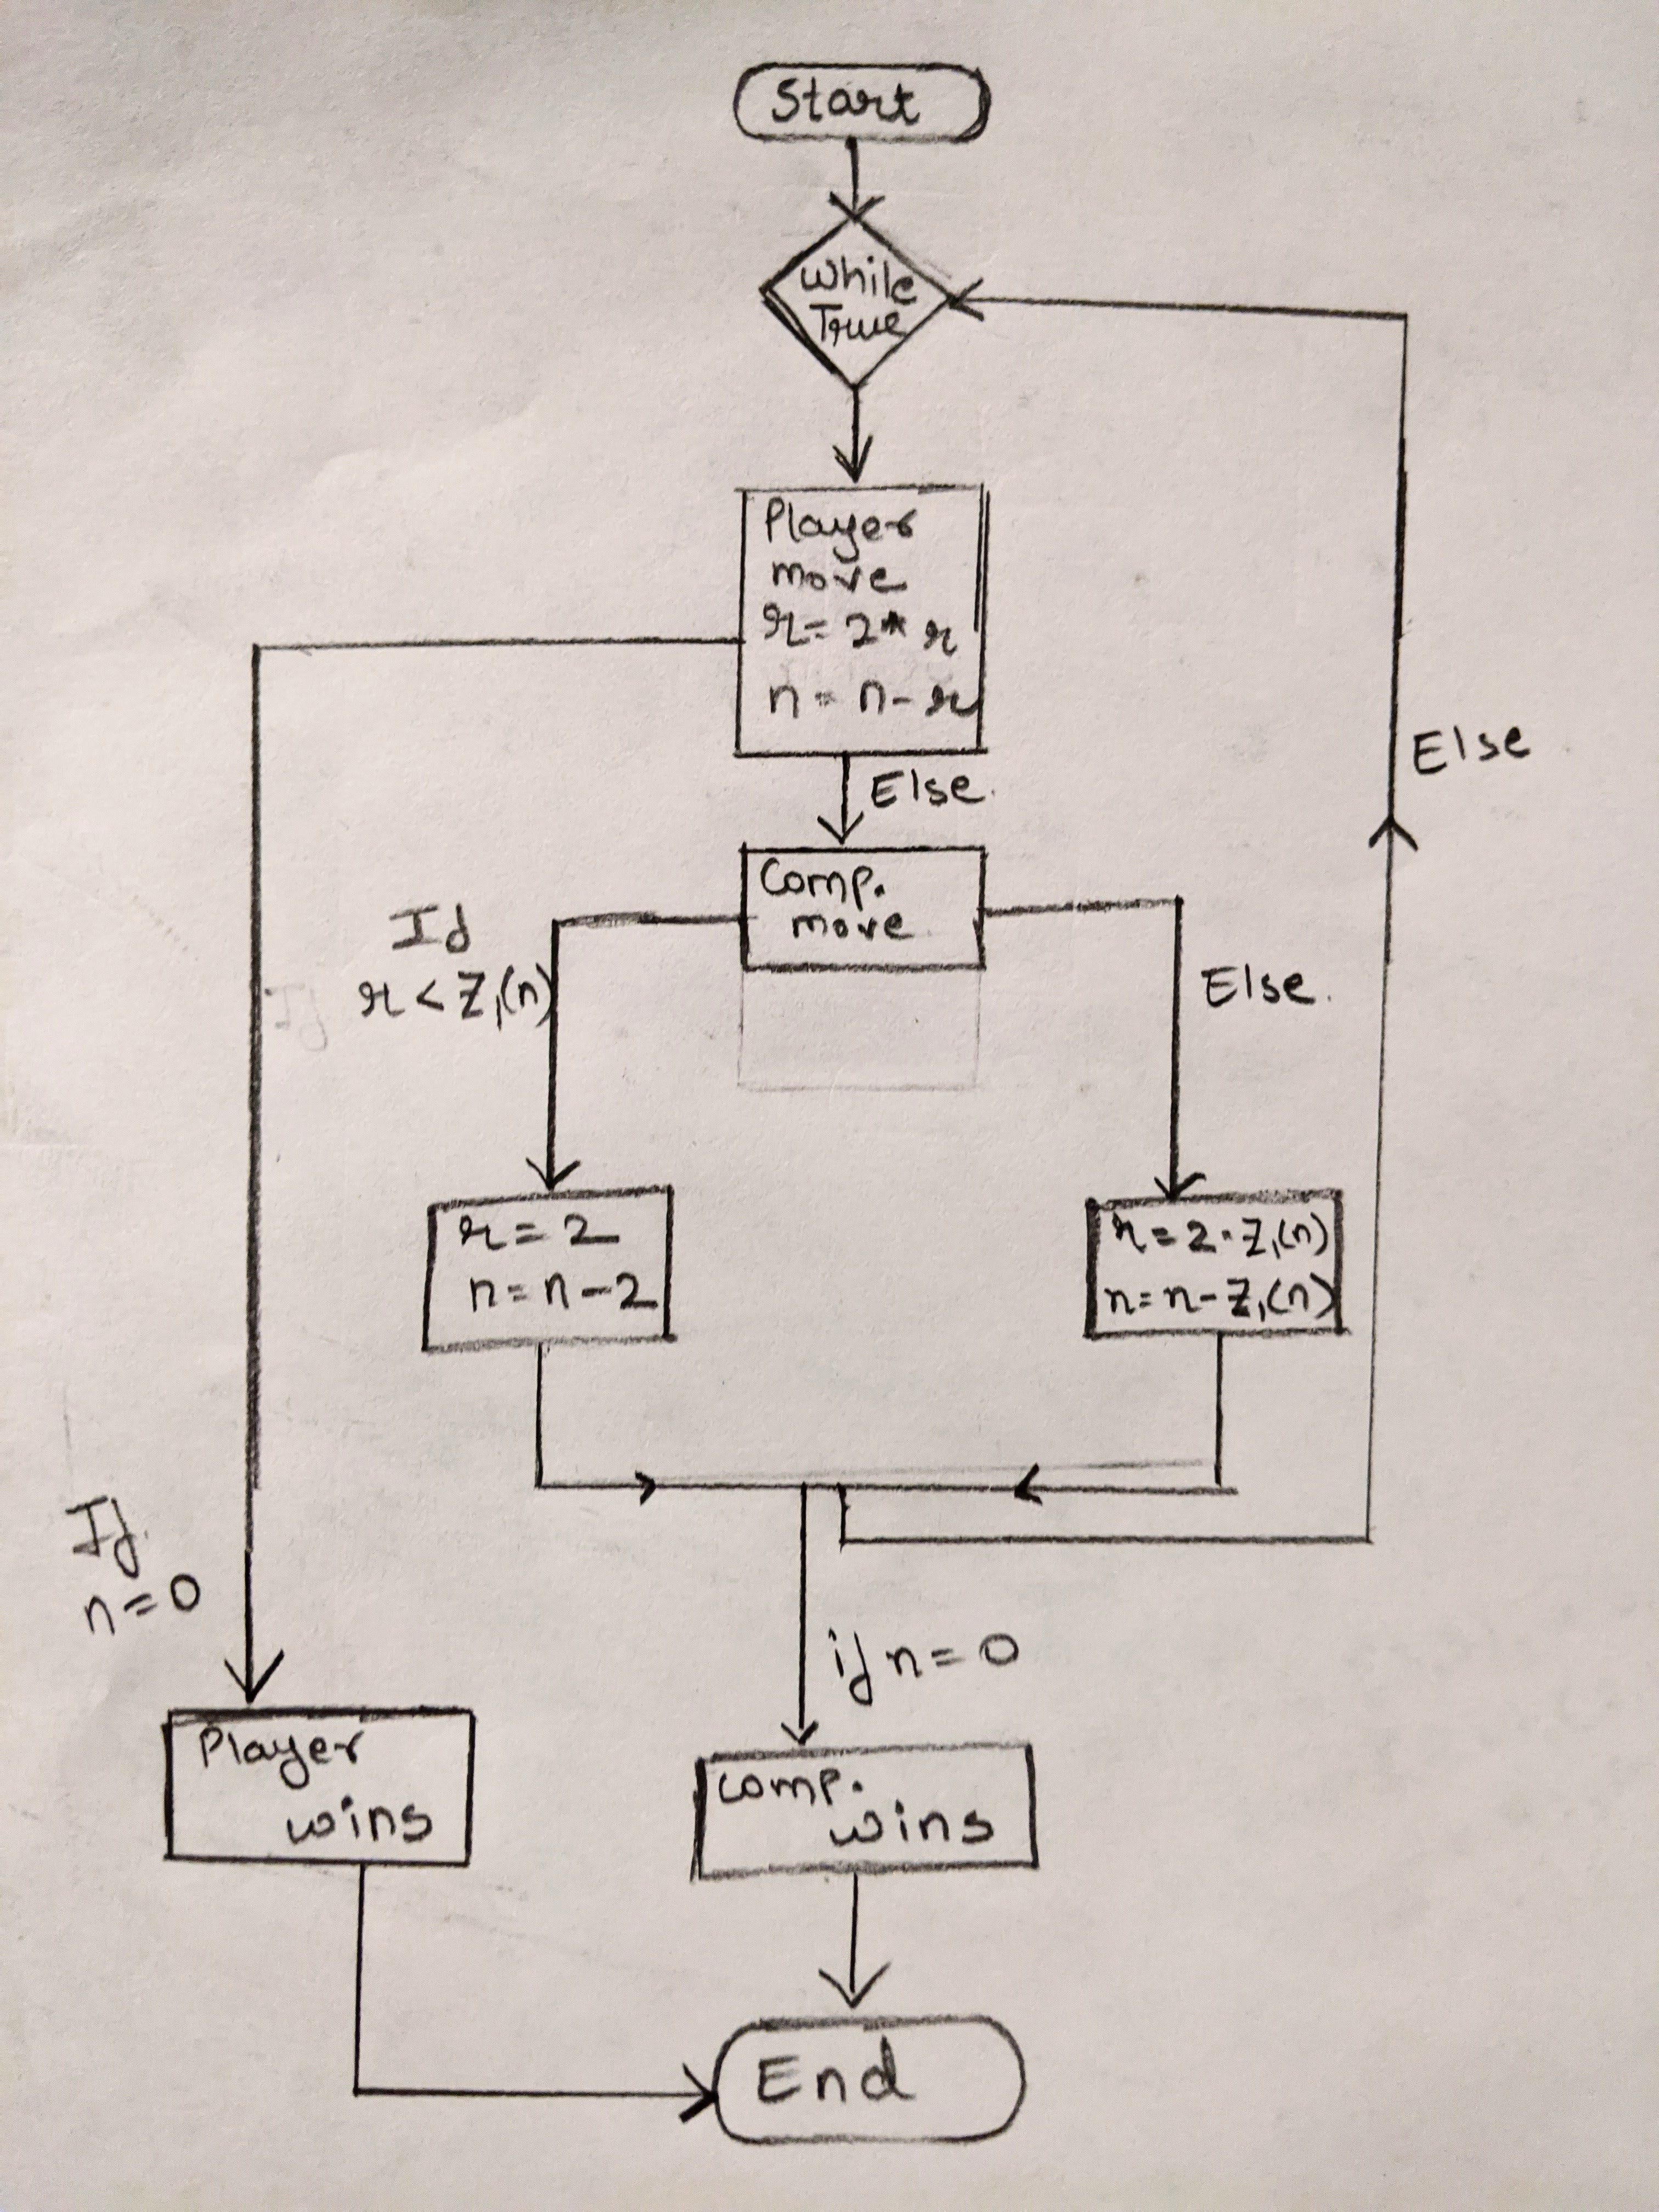 Start
While
True
Player
move
r = 2 * r
n = n - r
Else.
Comp.
move
If
r < Z₁(n)
Else.
Else
r = 2
n = n - 2
r = 2 · Z₁(n)
n = n - Z₁(n)
If
n = 0
if n = 0
Player
wins
comp.
wins
End